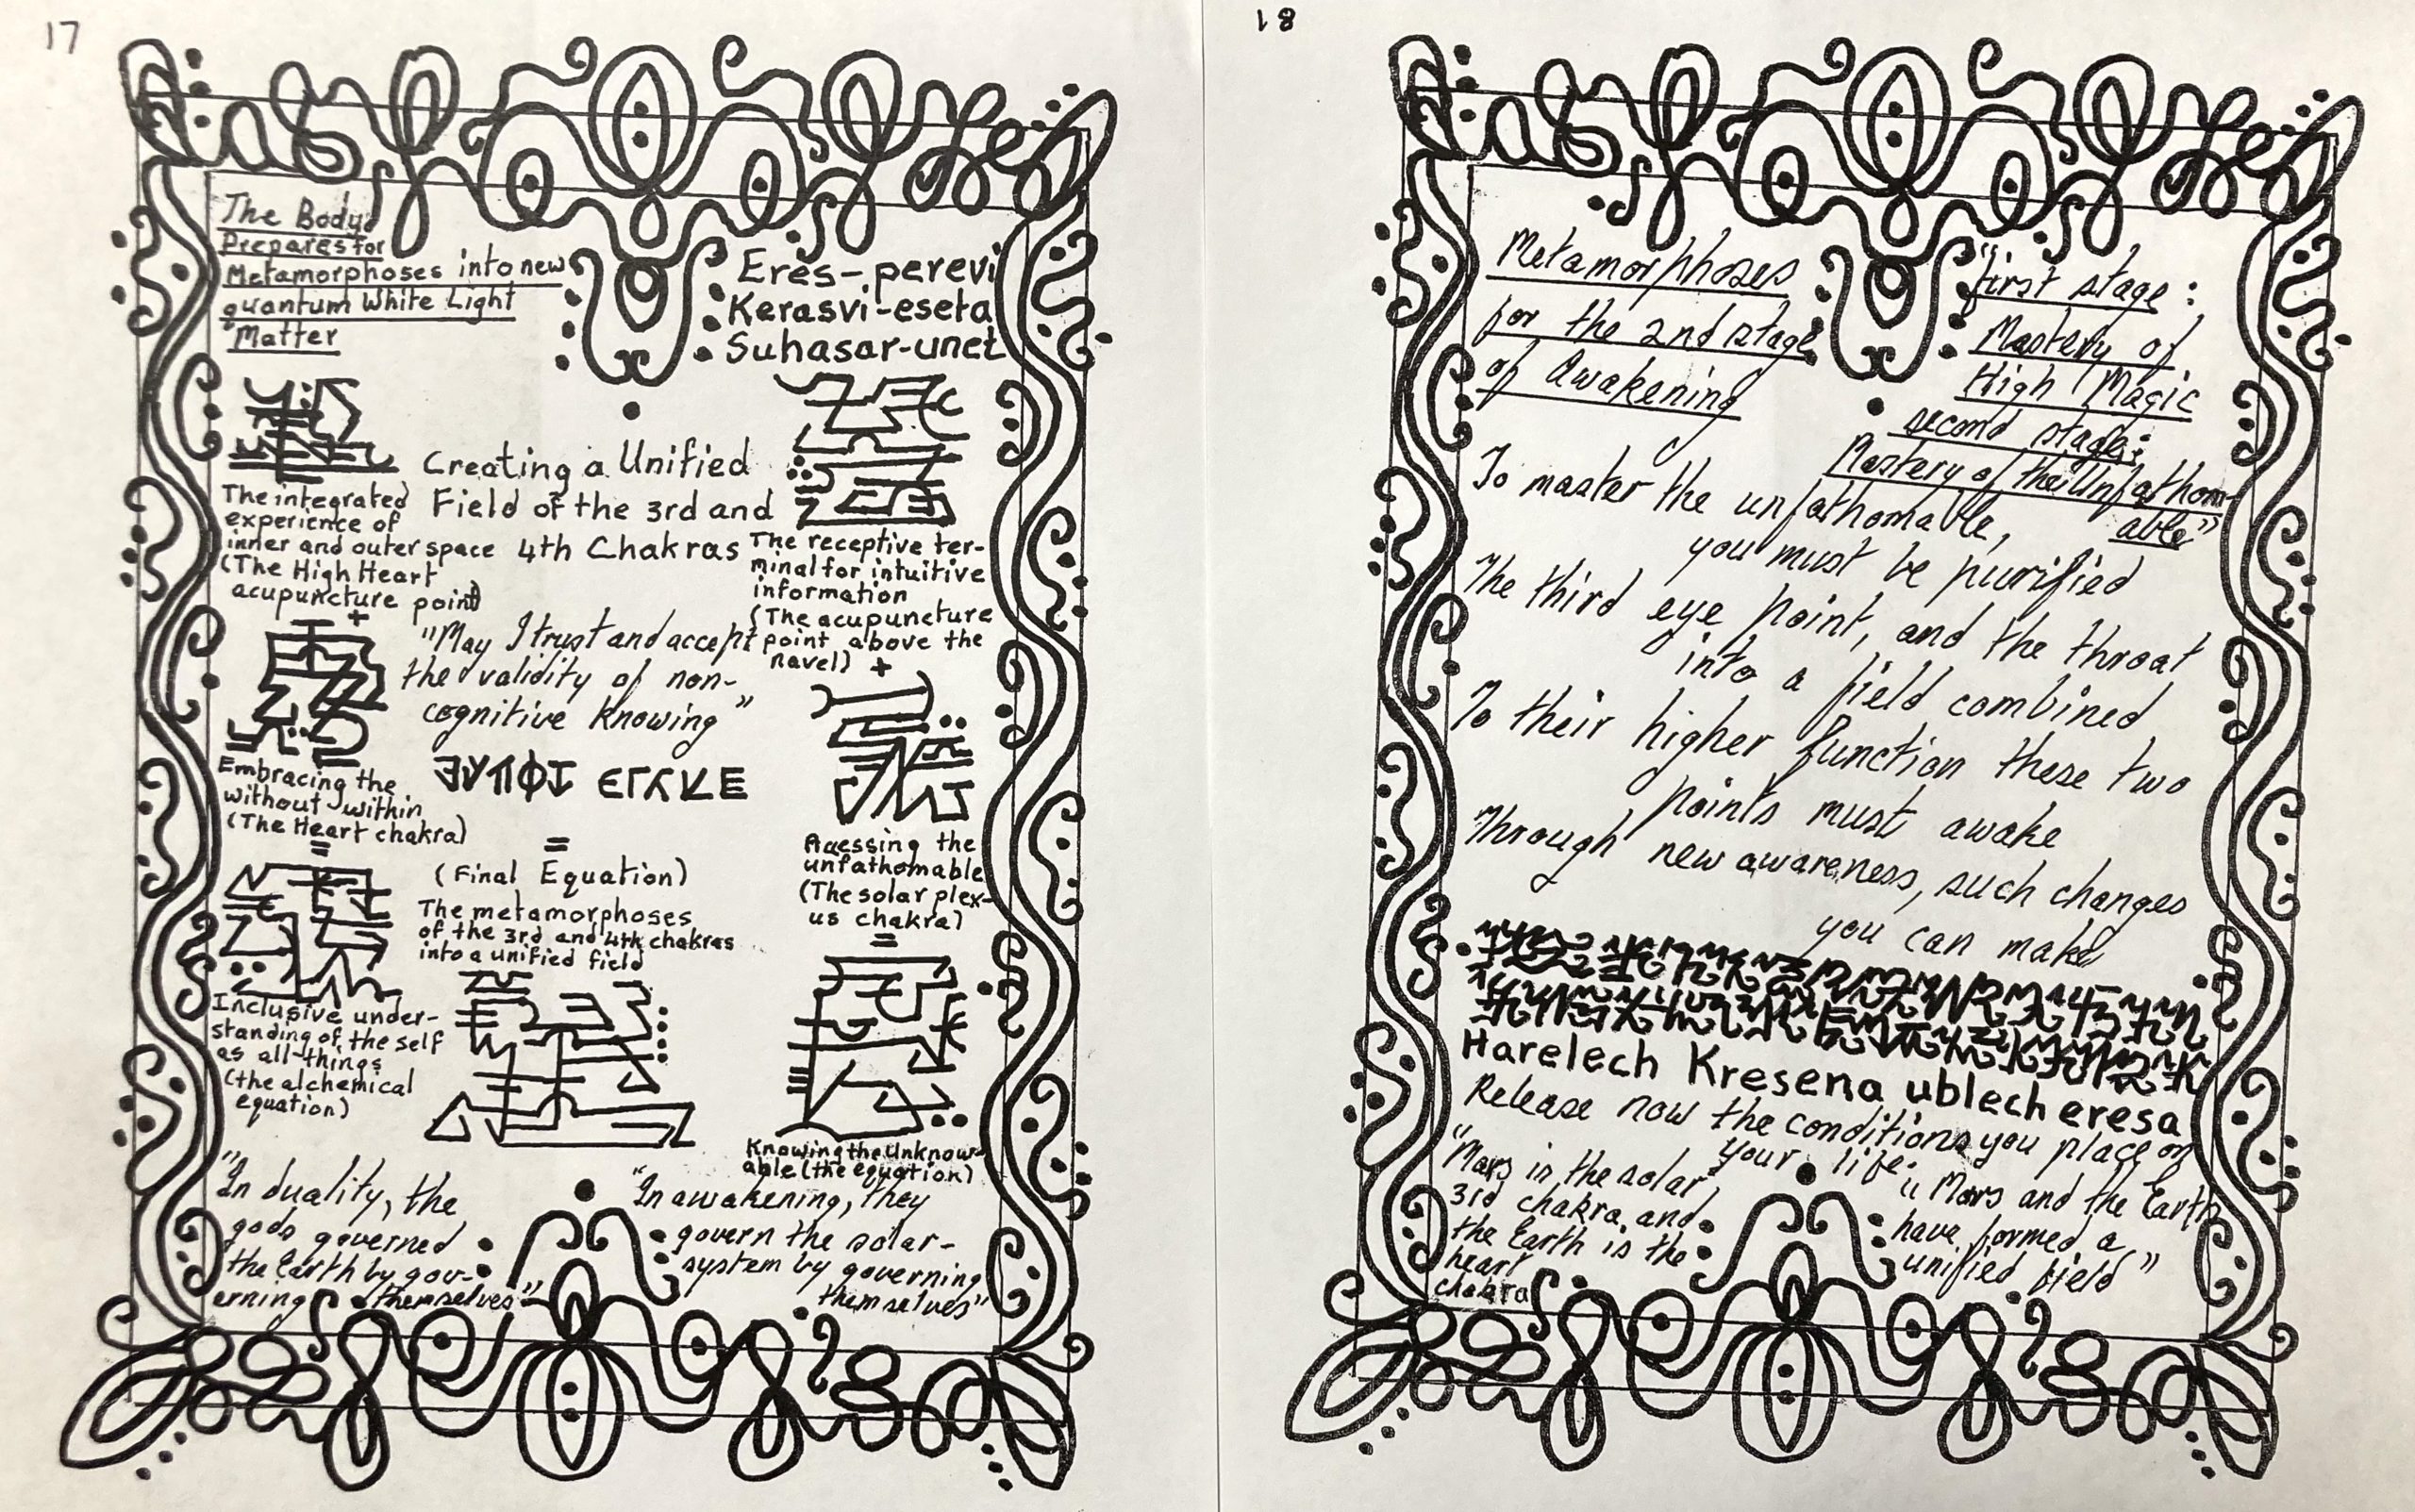 17
The Body
Prepares for
Metamorphoses into new
quantum White Light
Matter
Eres-perevi
Kerasvi-eseta
Suhasar-unet
Creating a Unified
Field of the 3rd and
4th Chakras
The integrated
experience of
inner and outer space
(The High Heart
acupuncture point)
+
Embracing the
without within
(The Heart chakra)
=
Inclusive under-
standing of the self
as all-things
(the alchemical
equation)
"May I trust and accept
the validity of non-
cognitive knowing"
=
(Final Equation)
The metamorphoses
of the 3rd and 4th chakras
into a unified field
The receptive ter-
minal for intuitive
information
(The acupuncture
point above the
navel) +
Acessing the
unfathomable
(The solar plex-
us chakra)
=
Knowing the Unknow-
able (the equation)
"In duality, the
gods governed
the Earth by gov-
erning themselves"
"In awakening, they
govern the solar-
system by governing
themselves"
18
Metamorphoses
for the 2nd stage
of Awakening
"first stage:
Mastery of
High Magic
second stage:
Mastery of the Unfathom-
able"
To master the unfathomable,
you must be purified
The third eye point, and the throat
into a field combined
To their higher function these two
points must awake
Through new awareness, such changes
you can make
Harelech Kresena ublech eresa
Release now the conditions you place on
your life.
"Mars is the solar
3rd chakra, and
the Earth is the
heart
chakra
"Mars and the Earth
have formed a
unified field"